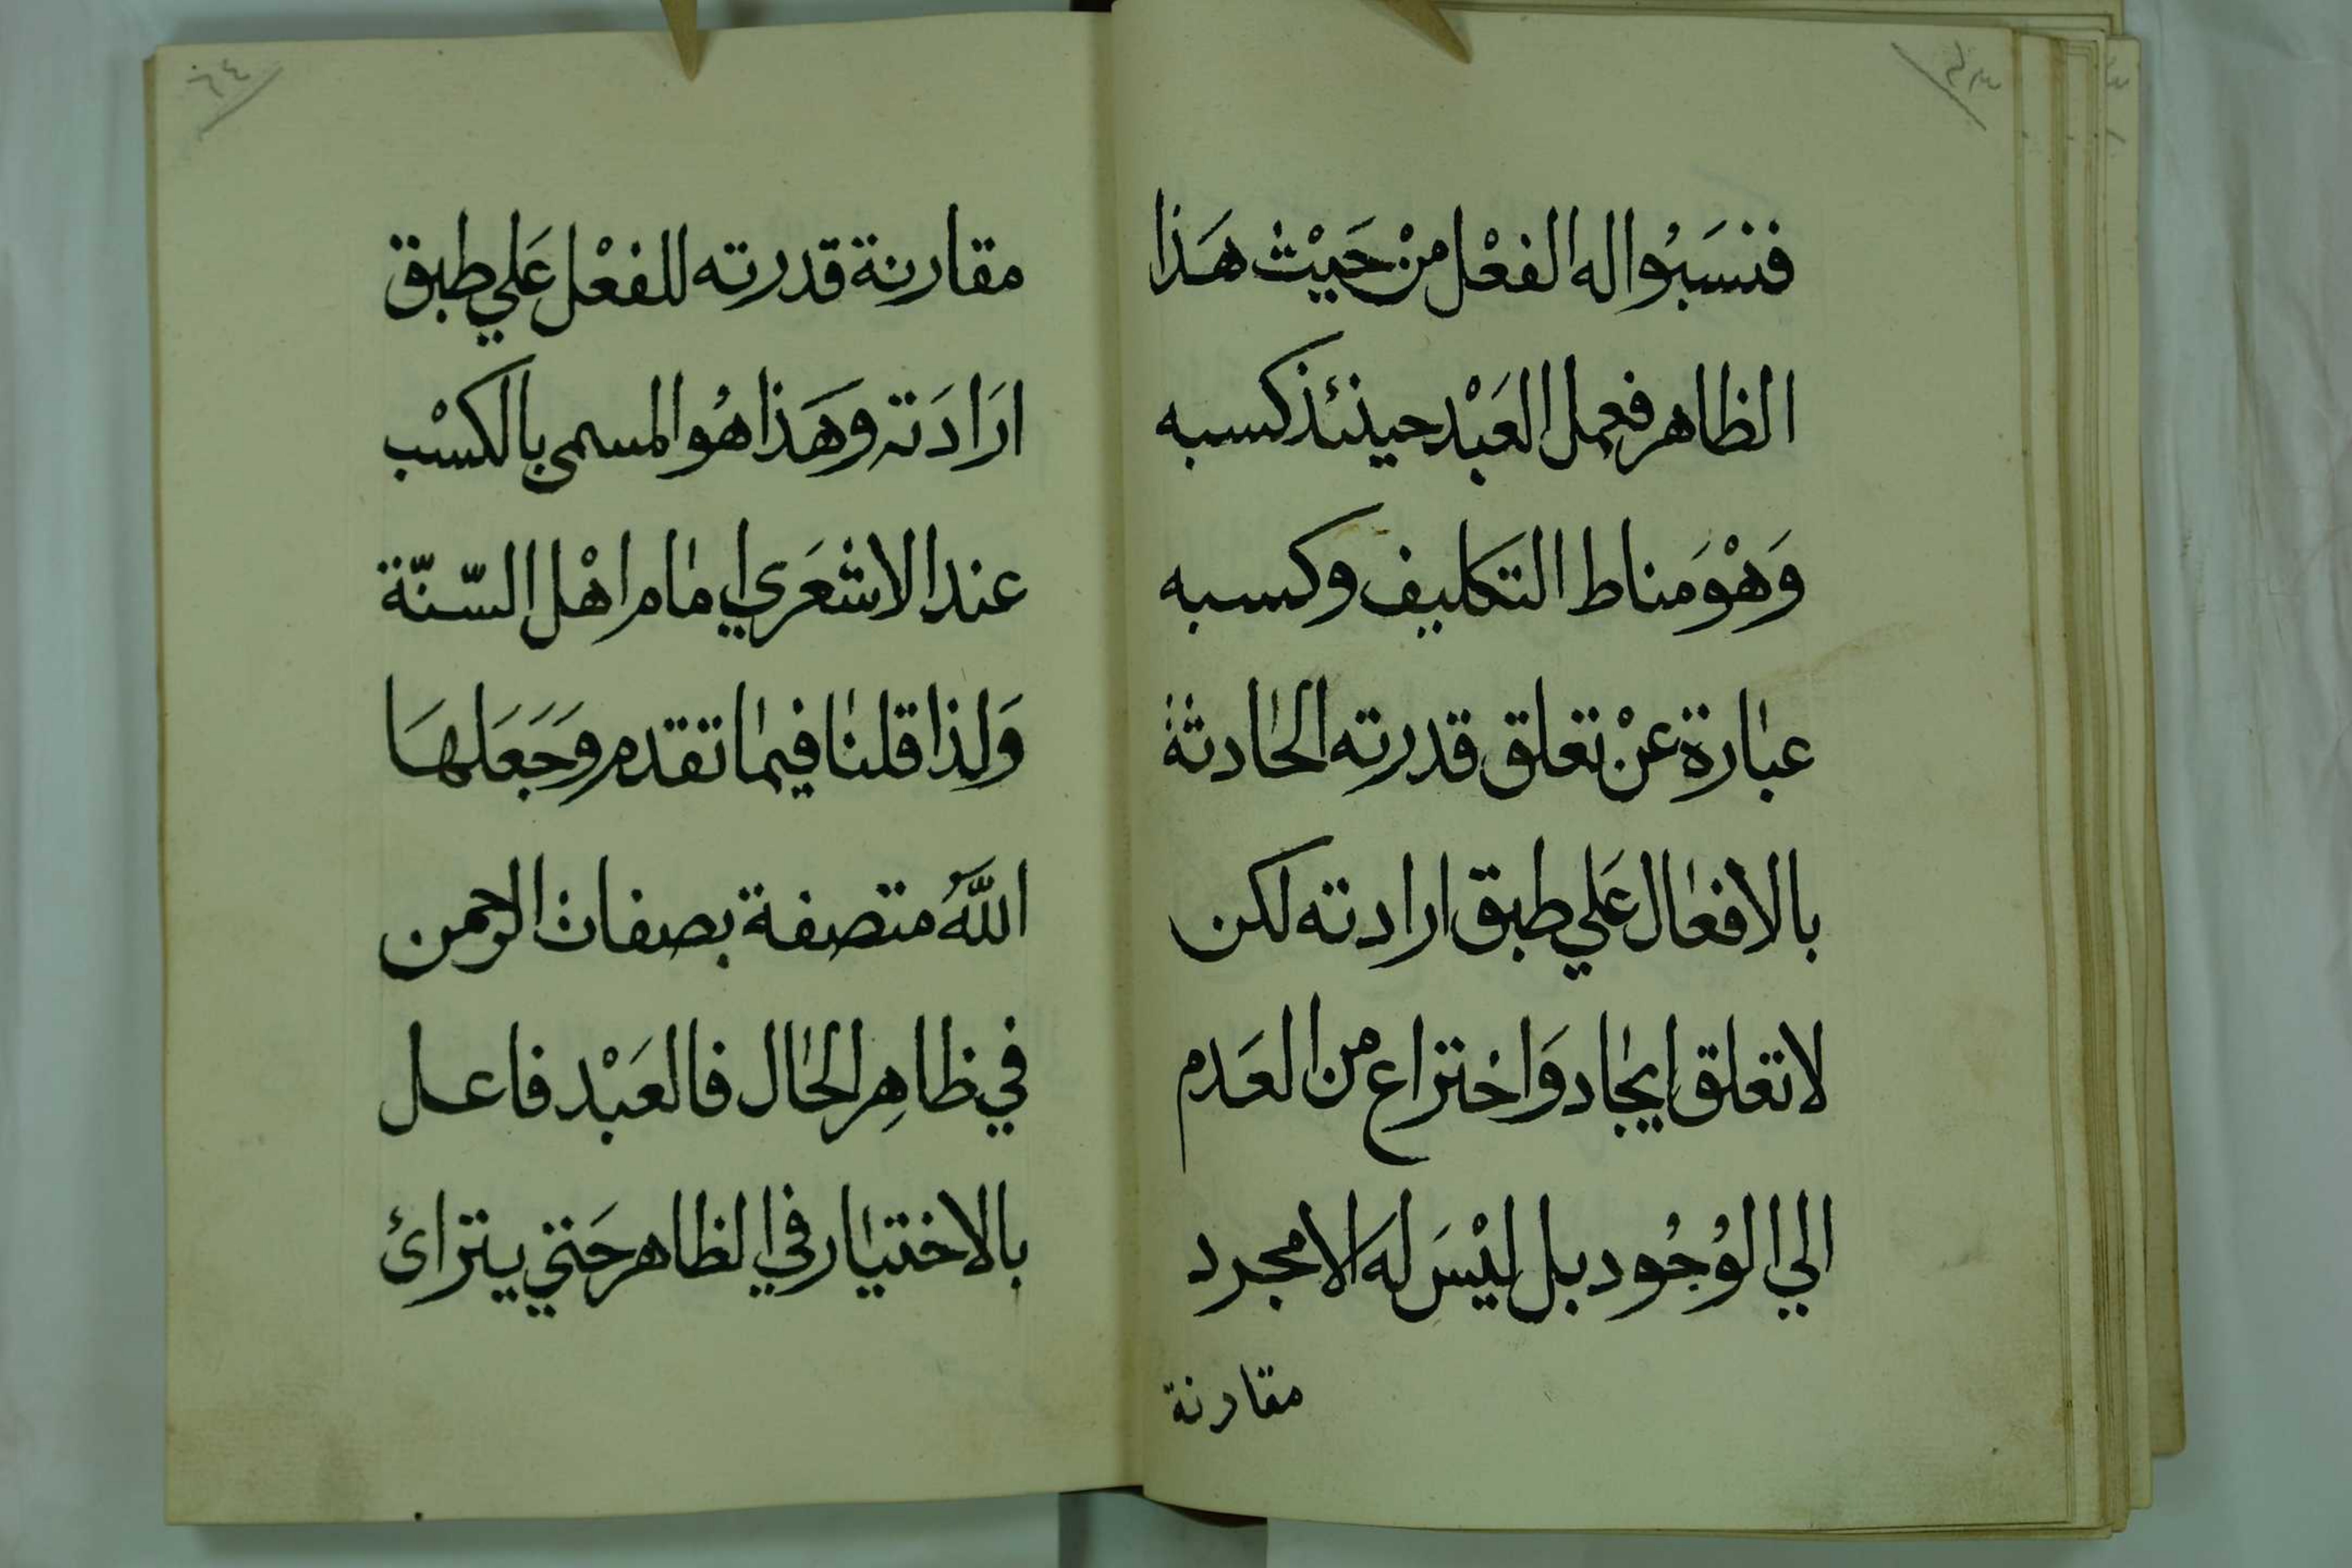 فنسَبُوا له الفعْل منْ حَيْث هَذا
الظاهر فعمل العَبْد حينئذ كسبه
وَهْوَ مناط التكليف وكسبه
عبارة عنْ تعلق قدرته الحادثة
بالافعال عَلي طبق ارادته لكن
لا تعلق ايجاد وَاختراع من العَدم
الي الوُجُود بل ليْسَ لهَ الا مجرد
مقارنة
٦٤
مقارنة قدرته للفعْل عَلي طبق
ارَادَته وَهَذا هُو المسمى بالكسْب
عند الاشعَري امام اهْل السّنّة
وَلذا قلنا فيما تقدم وَجَعَلهَا
اللَّهُ متصفة بصفات الرحمن
في ظاهِر الحال فالعَبْد فاعل
بالاختيار في الظاهر حَتي يترائ